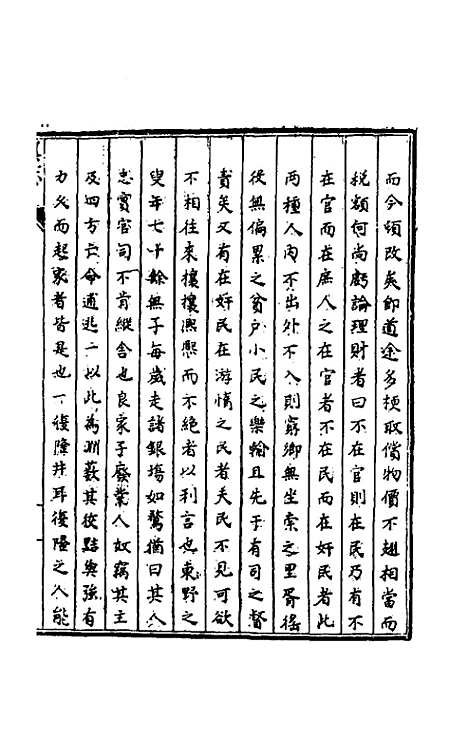 而今頓改矣即道途多梗取償物價不趐相當而
稅額何尚虧論理財者曰不在官則在民乃有不
在官而在庶人之在官者不在民而在奸民者此
兩種人內不出外不入則窮鄉無坐索之里胥徭
役無偏累之貧戶小民之樂輸且先于有司之督
責矣又有在奸民在游惰之民者夫民不見可欲
不相往來攘攘熙熙而不絕者以利言也東野之
叟年七十餘無子每歲走諸銀塲如鶩猶曰其人
忠實官司不肯縱舍也良家子廢業人奴竊其主
及四方亡命逋逃一以此為淵藪其從點與強有
力久而起家者皆是也一復隆井耳復隆之人能